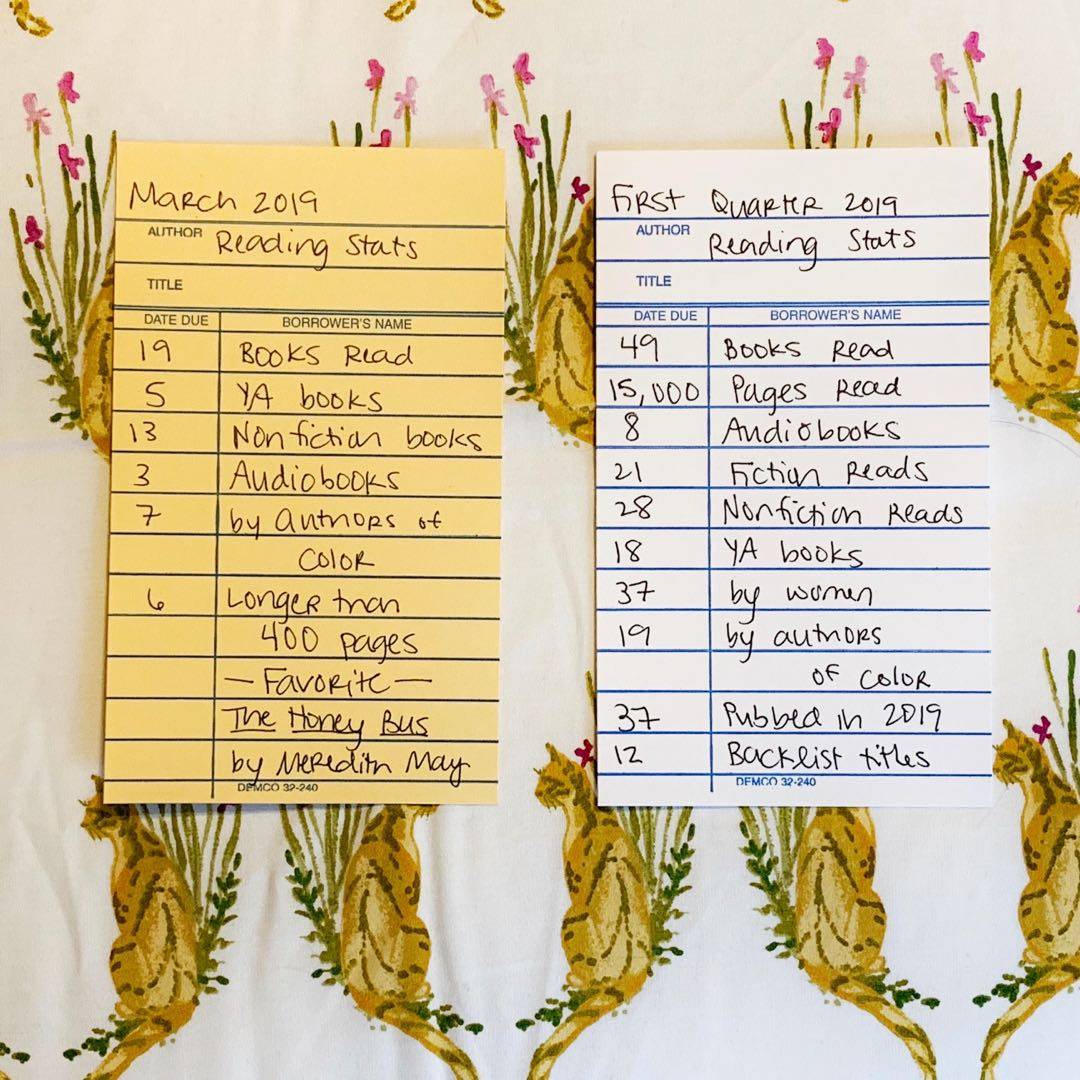 March 2019
AUTHOR Reading Stats
TITLE
DATE DUE BORROWER'S NAME
19 Books Read
5 YA books
13 Nonfiction books
3 Audiobooks
7 by Authors of
Color
6 Longer than
400 pages
— Favorite —
The Honey Bus
by Meredith May
DEMCO 32-240
First Quarter 2019
AUTHOR Reading Stats
TITLE
DATE DUE BORROWER'S NAME
49 Books Read
15,000 Pages Read
8 Audiobooks
21 Fiction Reads
28 Nonfiction Reads
18 YA books
37 by women
19 by authors
of color
37 Pubbed in 2019
12 Backlist titles
DEMCO 32-240